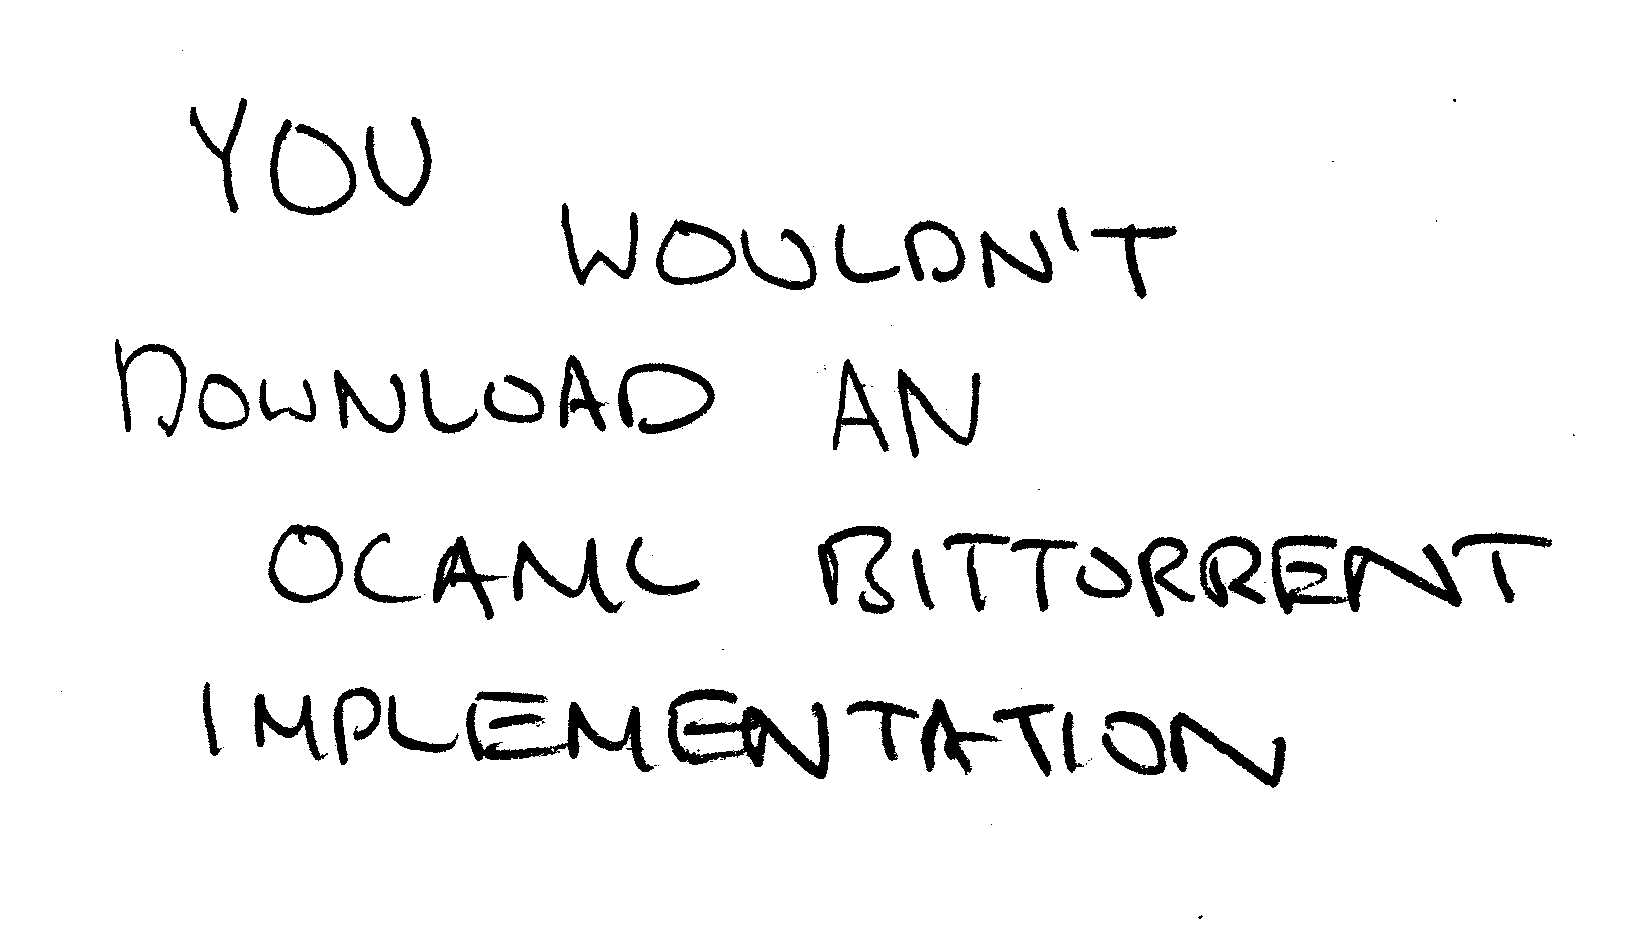 YOU
WOULDN'T
DOWNLOAD AN
OCAML BITTORRENT
IMPLEMENTATION